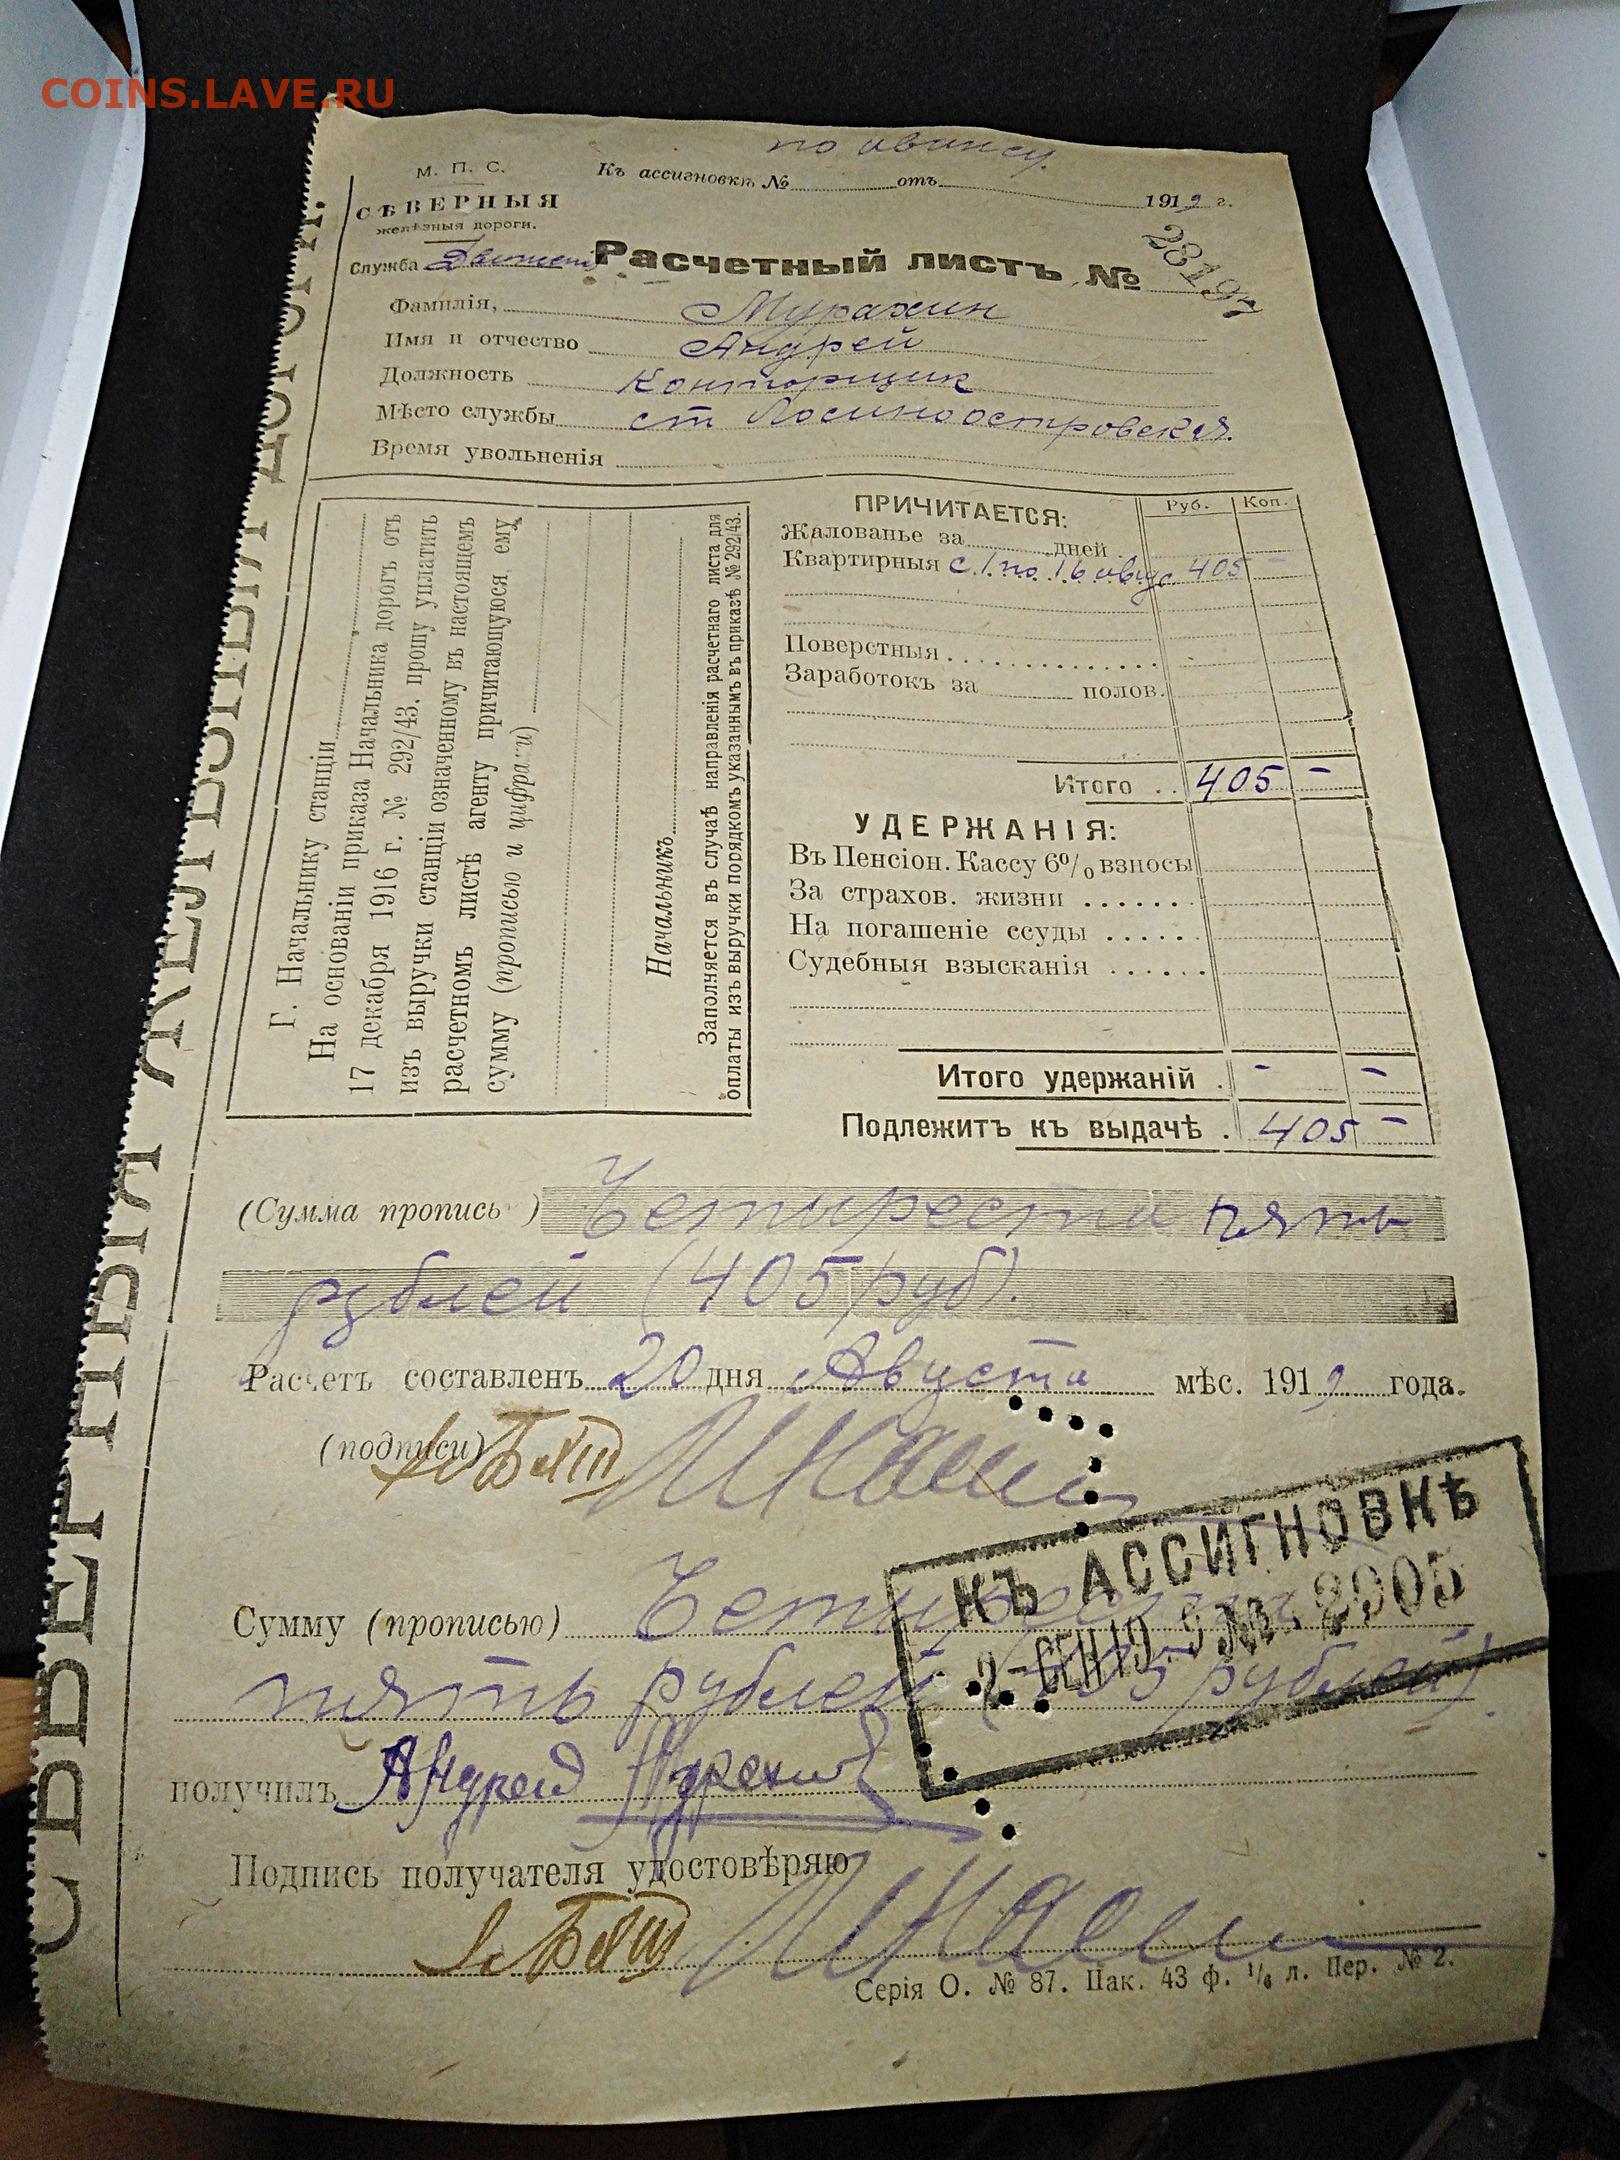 COINS.LAVE.RU
по авансу.
М. П. С.
Къ ассигновкѣ № отъ 1919 г.
СѢВЕРНЫЯ
желѣзныя дороги.
Служба
Расчетный листъ №
Фамилія,
Имя и отчество Андрей
Должность Конторщик
Мѣсто службы ст Лосиноостровская.
Время увольненія
Г. Начальнику станціи
На основаніи приказа Начальника дорогъ отъ
17 декабря 1916 г. № 292/43, прошу уплатить
изъ выручки станціи означенному въ настоящемъ
расчетномъ листѣ агенту причитающуюся ему
сумму (прописью и цифрами)
Начальникъ
Заполняется въ случаѣ направленія расчетнаго листа для
оплаты изъ выручки порядкомъ указаннымъ въ приказѣ № 292/43.
ПРИЧИТАЕТСЯ: Руб. Коп.
Жалованье за дней
Квартирныя с 1 по 16 авгус 405 –
Поверстныя
Заработокъ за полов.
Итого . . 405 –
УДЕРЖАНІЯ:
Въ Пенсіон. Кассу 6% взносы
За страхов. жизни
На погашеніе ссуды
Судебныя взысканія
Итого удержаній . – –
Подлежитъ къ выдачѣ . 405 –
(Сумма прописью) Четыреста пять
рублей (405 руб).
Расчетъ составленъ 20 дня Августа мѣс. 1919 года.
(подписи)
КЪ АССИГНОВКѢ
Сумму (прописью) Четыреста
пять рублей (405 рублей).
получилъ Андрей
Подпись получателя удостовѣряю
Серія О. № 87. Пак. 43 ф. 1/6 л. Пер. № 2.